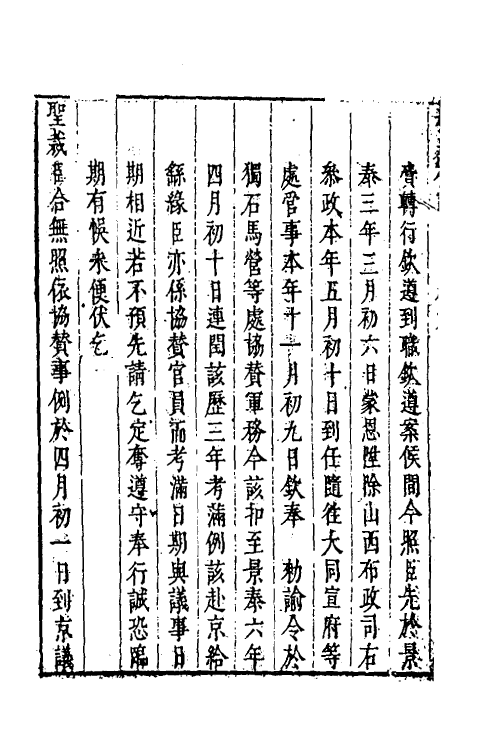 賫轉行欽遵到職欽遵案候間今照臣先於景
泰三年三月初六日蒙恩陞除山西布政司右
參政本年五月初十日到任隨往大同宣府等
處管事本年十一月初九日欽奉　勅諭令於
獨石馬營等處協贊軍務今該扣至景泰六年
四月初十日連閏該歷三年考滿例該赴京給
繇緣臣亦係協贊官員而考滿日期與議事日
期相近若不預先請乞定奪遵守奉行誠恐臨
期有悮來便伏乞
聖裁合無照依協贊事例於四月初一日到京議